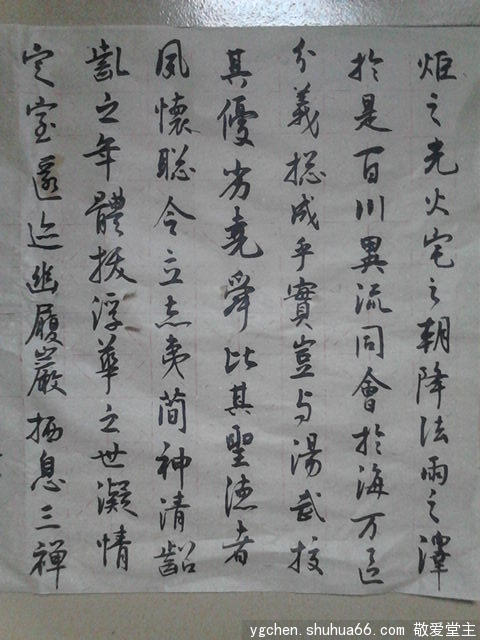 炬之光火宅之朝降法雨之澤
於是百川異流同會於海万區
分義揔成乎實豈与湯武挍
其優劣堯舜比其聖德者
夙懷聡令立志夷簡神清齠
齔之年體拔浮華之世凝情
定室匿迹幽履巖栖息三禅
ygchen.shuhua66.com 敬爱堂主